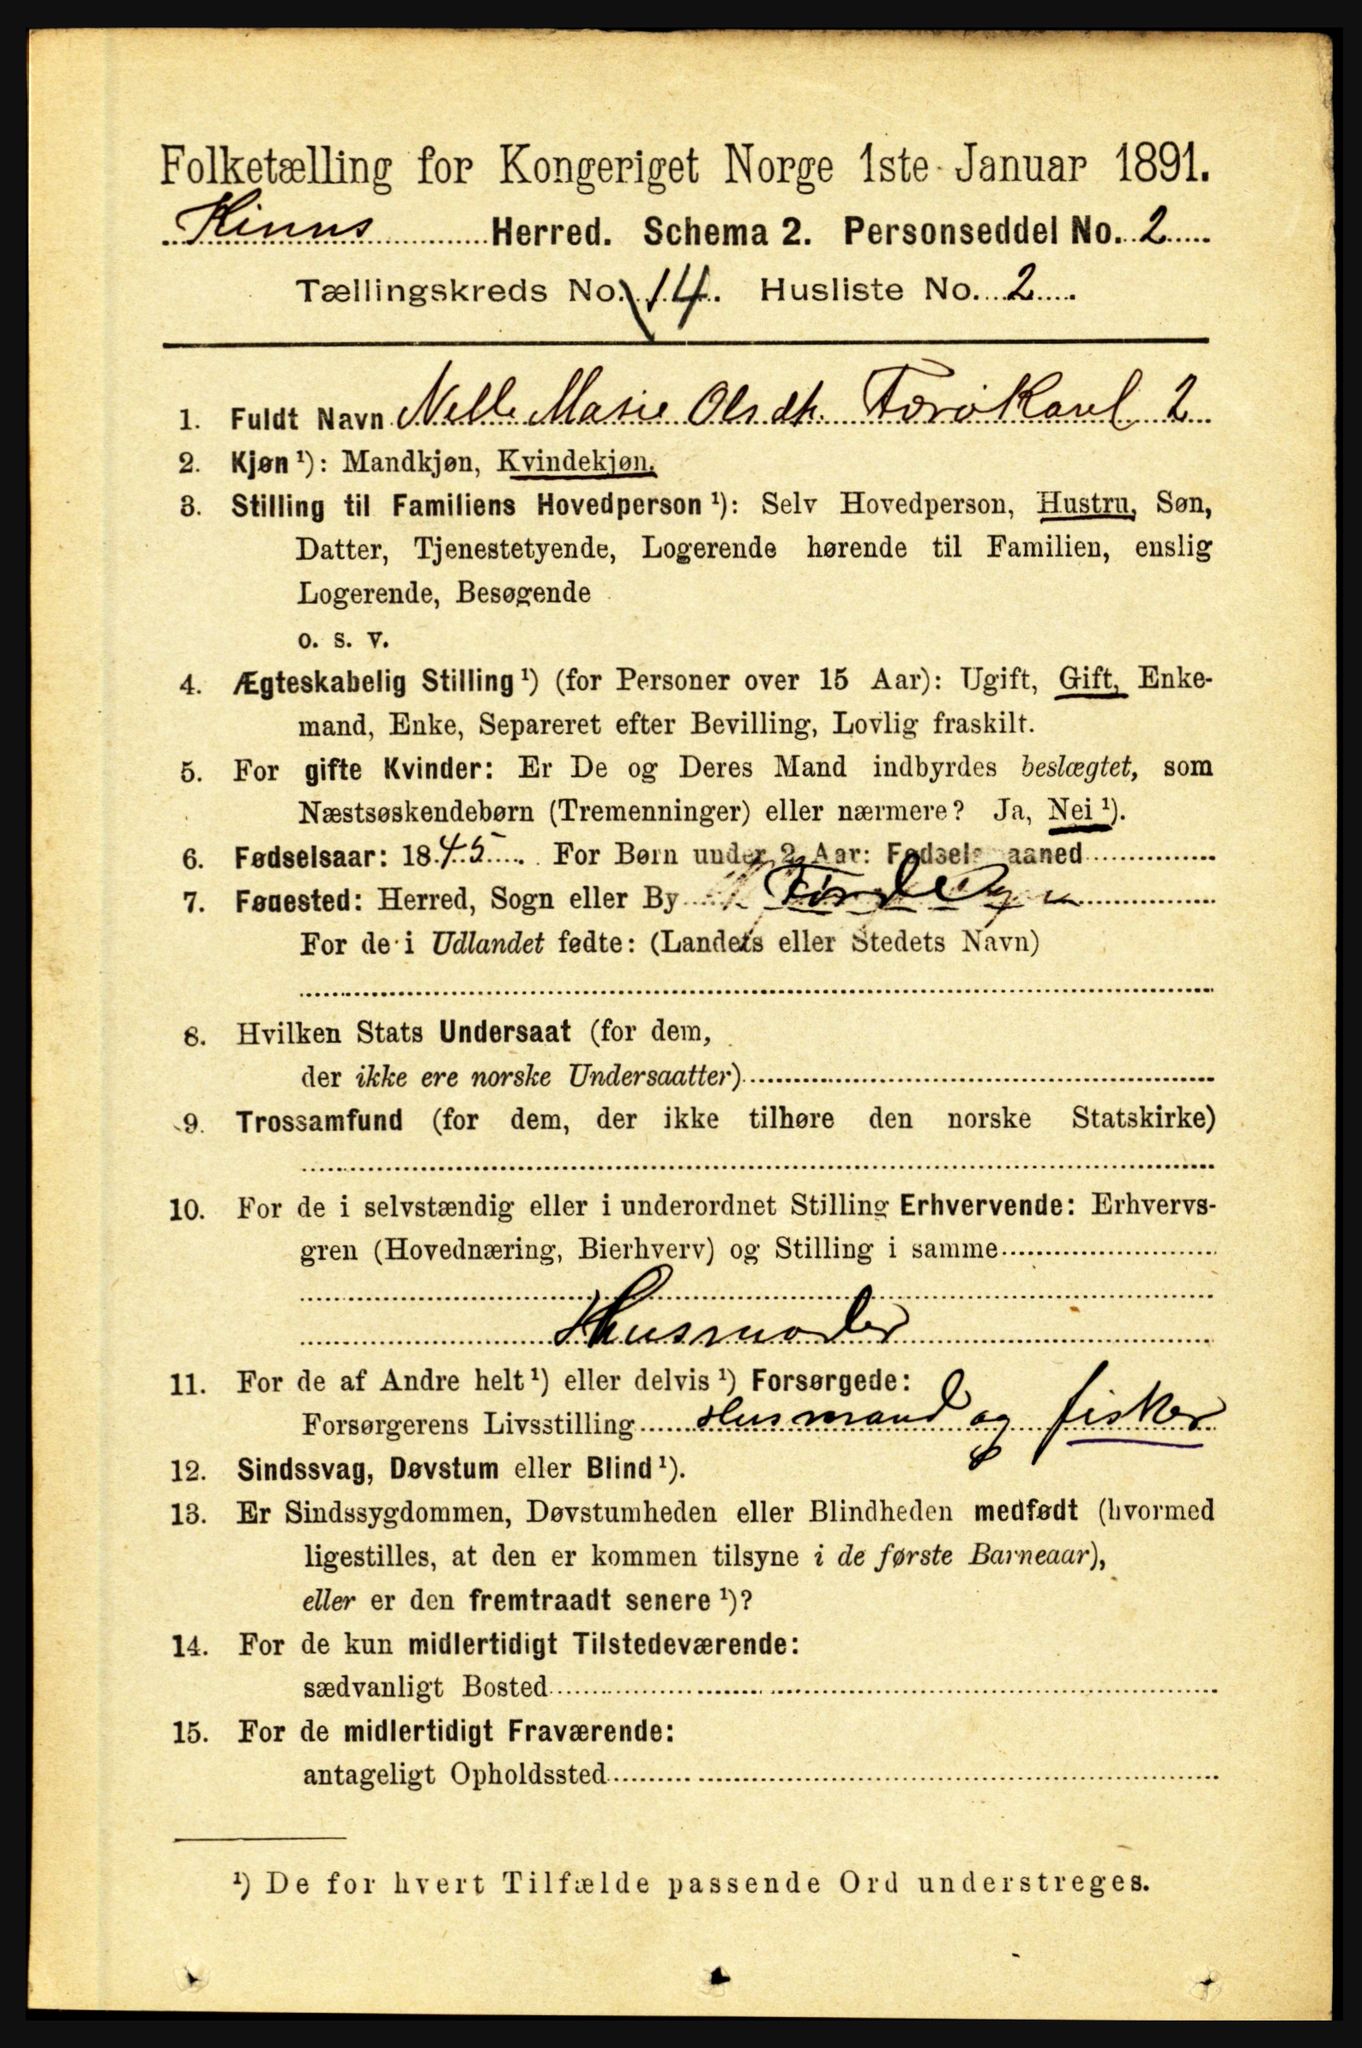 Folketælling for Kongeriget Norge 1ste Januar 1891.
Kinns Herred. Schema 2. Personseddel No. 2
Tællingskreds No. 14. Husliste No. 2
1. Fuldt Navn Nelle Marie Olsdtr. 2
2. Kjøn ¹): Mandkjøn, Kvindekjøn.
3. Stilling til Familiens Hovedperson ¹): Selv Hovedperson, Hustru, Søn,
Datter, Tjenestetyende, Logerende hørende til Familien, enslig
Logerende, Besøgende
o. s. v.
4. Ægteskabelig Stilling ¹) (for Personer over 15 Aar): Ugift, Gift, Enke-
mand, Enke, Separeret efter Bevilling, Lovlig fraskilt.
5. For gifte Kvinder: Er De og Deres Mand indbyrdes beslægtet, som
Næstsøskendebørn (Tremenninger) eller nærmere? Ja, Nei ¹).
6. Fødselsaar: 1845. For Børn under 2 Aar: Fødselsmaaned
7. Fødested: Herred, Sogn eller By Førde
For de i Udlandet fødte: (Landets eller Stedets Navn)
8. Hvilken Stats Undersaat (for dem,
der ikke ere norske Undersaatter)
9. Trossamfund (for dem, der ikke tilhøre den norske Statskirke)
10. For de i selvstændig eller i underordnet Stilling Erhvervende: Erhvervs-
gren (Hovednæring, Bierhverv) og Stilling i samme
Husmoder
11. For de af Andre helt ¹) eller delvis ¹) Forsørgede:
Forsørgerens Livsstilling Husmand og fisker
12. Sindssvag, Døvstum eller Blind ¹).
13. Er Sindssygdommen, Døvstumheden eller Blindheden medfødt (hvormed
ligestilles, at den er kommen tilsyne i de første Barneaar),
eller er den fremtraadt senere ¹)?
14. For de kun midlertidigt Tilstedeværende:
sædvanligt Bosted
15. For de midlertidigt Fraværende:
antageligt Opholdssted
¹) De for hvert Tilfælde passende Ord understreges.